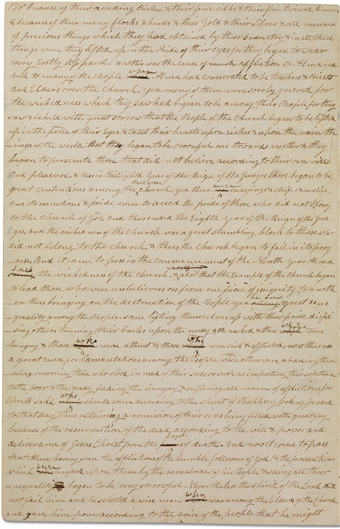 & because of their many flocks & herds & their Gold & their Silver & all manner
of precious things which they had obtained by their Industry & in all these
things were they lifted up in the Pride of their eyes for they began to wear
very costly Apparel & now this was the cause of much affliction to Alma yea
& to many of the People whom Alma had consecrated to be teachers & Priests
& Elders over the Church yea many of them were sorely grieved for
the wickedness which they saw had began to be among their People for they
saw & beheld with great sorrow that the People of the Church began to be lifted
up in the pride of their Eyes & to set their hearts upon riches & upon the vain th
ings of the world that they began to be scornful one towards another & they
began to persecute those that did not believe according to their own will
and pleasure & thus in the Eighth Year of the Reign of the Judges there began to be
great contentions among the Church yea there were envyings & strife & malice
and Persecutions & pride even to exceed the pride of those who did not belong
to the church of God and thus ended the Eighth Year of the Reign of the Jud
ges and the wickedness of the church was a great stumbling block to those who
did not belong to the church & thus the church began to fail in its progr
ess And it came to pass in the commencement of the Ninth Year Alma
saw the wickedness of the church & saw that the Example of the church began
to lead those who were unbelievers on from one piece of iniquity to anoth
er thus bringing on the destruction of the People yea he saw great ineq
uality among the people some lifting themselves up with their pride dispi
sing others turning their backs upon the needy & the naked & those who were
hungry & those who were athirst & those who were sick & afflicted now this was
a great cause for lamentations among the People while others were abasing them
selves succoring those who stood in need of their succor such as imparting their substance
to the poor & the needy feeding the hungry & suffering all manner of afflictions for
Christs sake who should come according to the spirit of Prophesy looking forward
to that day thus retaining a remission of their sins being filled with great joy
because of the resurrection of the dead according to the will & power and
deliverance of Jesus Christ from the bands of death and now it came to pass
that Alma having seen the afflictions of the humble followers of God & the persecutions
which were heaped upon them by the remainder of his People & seeing all their
inequality began to be very sorrowful Nevertheless the spirit of the Lord did
not fail him and he selected a wise man who was among the Elders of the Church
and gave him power according to the voice of the people that he might